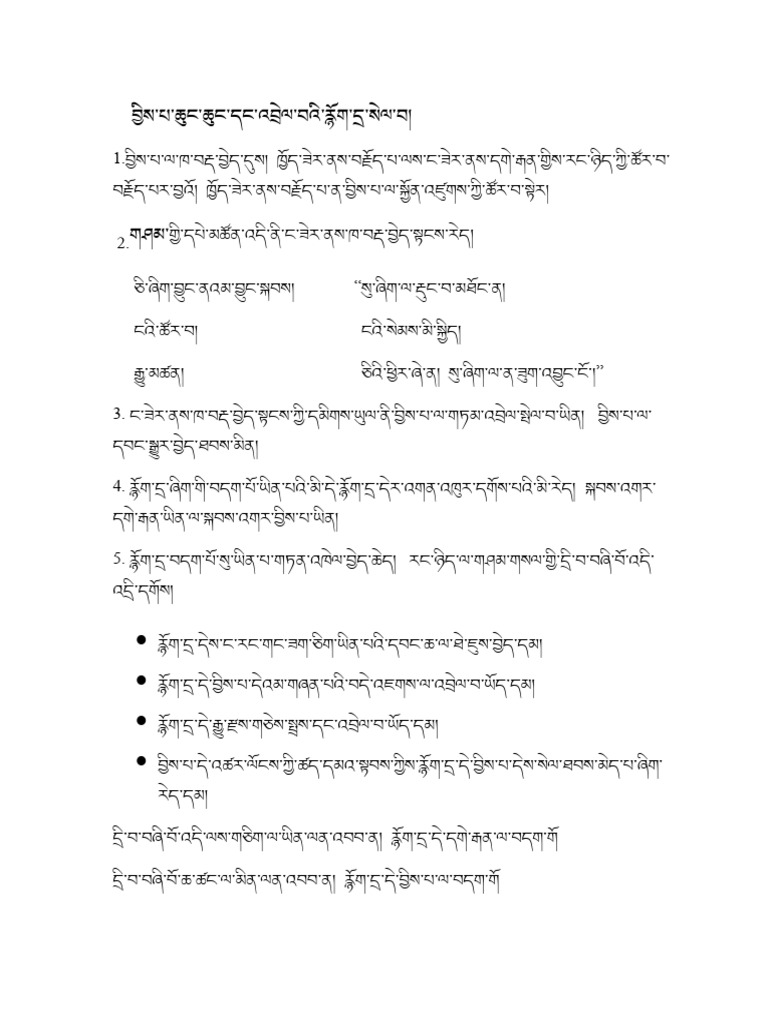 བྱིས་པ་ཆུང་ཆུང་དང་འབྲེལ་བའི་རྙོག་དྲ་སེལ་བ།
1.བྱིས་པ་ལ་ཁ་བརྡ་བྱེད་དུས།  ཁྱོད་ཟེར་ནས་བརྗོད་པ་ལས་ང་ཟེར་ནས་དགེ་རྒན་གྱིས་རང་ཉིད་ཀྱི་ཚོར་བ་
བརྗོད་པར་བྱའོ།  ཁྱོད་ཟེར་ནས་བརྗོད་པ་ན་བྱིས་པ་ལ་སྐྱོན་འཛུགས་ཀྱི་ཚོར་བ་སྟེར།
2.གཤམ་གྱི་དཔེ་མཚོན་འདི་ནི་ང་ཟེར་ནས་ཁ་བརྡ་བྱེད་སྟངས་རེད།
ཅི་ཞིག་བྱུང་ནའམ་བྱུང་སྐབས།  “སུ་ཞིག་ལ་རྡུང་བ་མཐོང་ན།
ངའི་ཚོར་བ།  ངའི་སེམས་མི་སྐྱིད།
རྒྱུ་མཚན།  ཅིའི་ཕྱིར་ཞེ་ན།  སུ་ཞིག་ལ་ན་ཟུག་འབྱུང་ངོ་།”
3. ང་ཟེར་ནས་ཁ་བརྡ་བྱེད་སྟངས་ཀྱི་དམིགས་ཡུལ་ནི་བྱིས་པ་ལ་གཏམ་འབྲེལ་སྤེལ་བ་ཡིན།  བྱིས་པ་ལ་
དབང་སྒྱུར་བྱེད་ཐབས་མིན།
4. རྙོག་དྲ་ཞིག་གི་བདག་པོ་ཡིན་པའི་མི་དེ་རྙོག་དྲ་དེར་འགན་འཁུར་དགོས་པའི་མི་རེད།  སྐབས་འགར་
དགེ་རྒན་ཡིན་ལ་སྐབས་འགར་བྱིས་པ་ཡིན།
5. རྙོག་དྲ་བདག་པོ་སུ་ཡིན་པ་གཏན་འཁེལ་བྱེད་ཆེད།  རང་ཉིད་ལ་གཤམ་གསལ་གྱི་དྲི་བ་བཞི་པོ་འདི་
འདྲི་དགོས།
● རྙོག་དྲ་དེས་ང་རང་གང་ཟག་ཅིག་ཡིན་པའི་དབང་ཆ་ལ་ཐེ་ཇུས་བྱེད་དམ།
● རྙོག་དྲ་དེ་བྱིས་པ་དེའམ་གཞན་པའི་བདེ་འཇགས་ལ་འབྲེལ་བ་ཡོད་དམ།
● རྙོག་དྲ་དེ་རྒྱུ་རྫས་གཅེས་སྤྲས་དང་འབྲེལ་བ་ཡོད་དམ།
● བྱིས་པ་དེ་འཚར་ལོངས་ཀྱི་ཚད་དམའ་སྟབས་ཀྱིས་རྙོག་དྲ་དེ་བྱིས་པ་དེས་སེལ་ཐབས་མེད་པ་ཞིག་
རེད་དམ།
དྲི་བ་བཞི་པོ་འདི་ལས་གཅིག་ལ་ཡིན་ལན་འབབ་ན།  རྙོག་དྲ་དེ་དགེ་རྒན་ལ་བདག་གོ
དྲི་བ་བཞི་པོ་ཆ་ཚང་ལ་མིན་ལན་འབབ་ན།  རྙོག་དྲ་དེ་བྱིས་པ་ལ་བདག་གོ